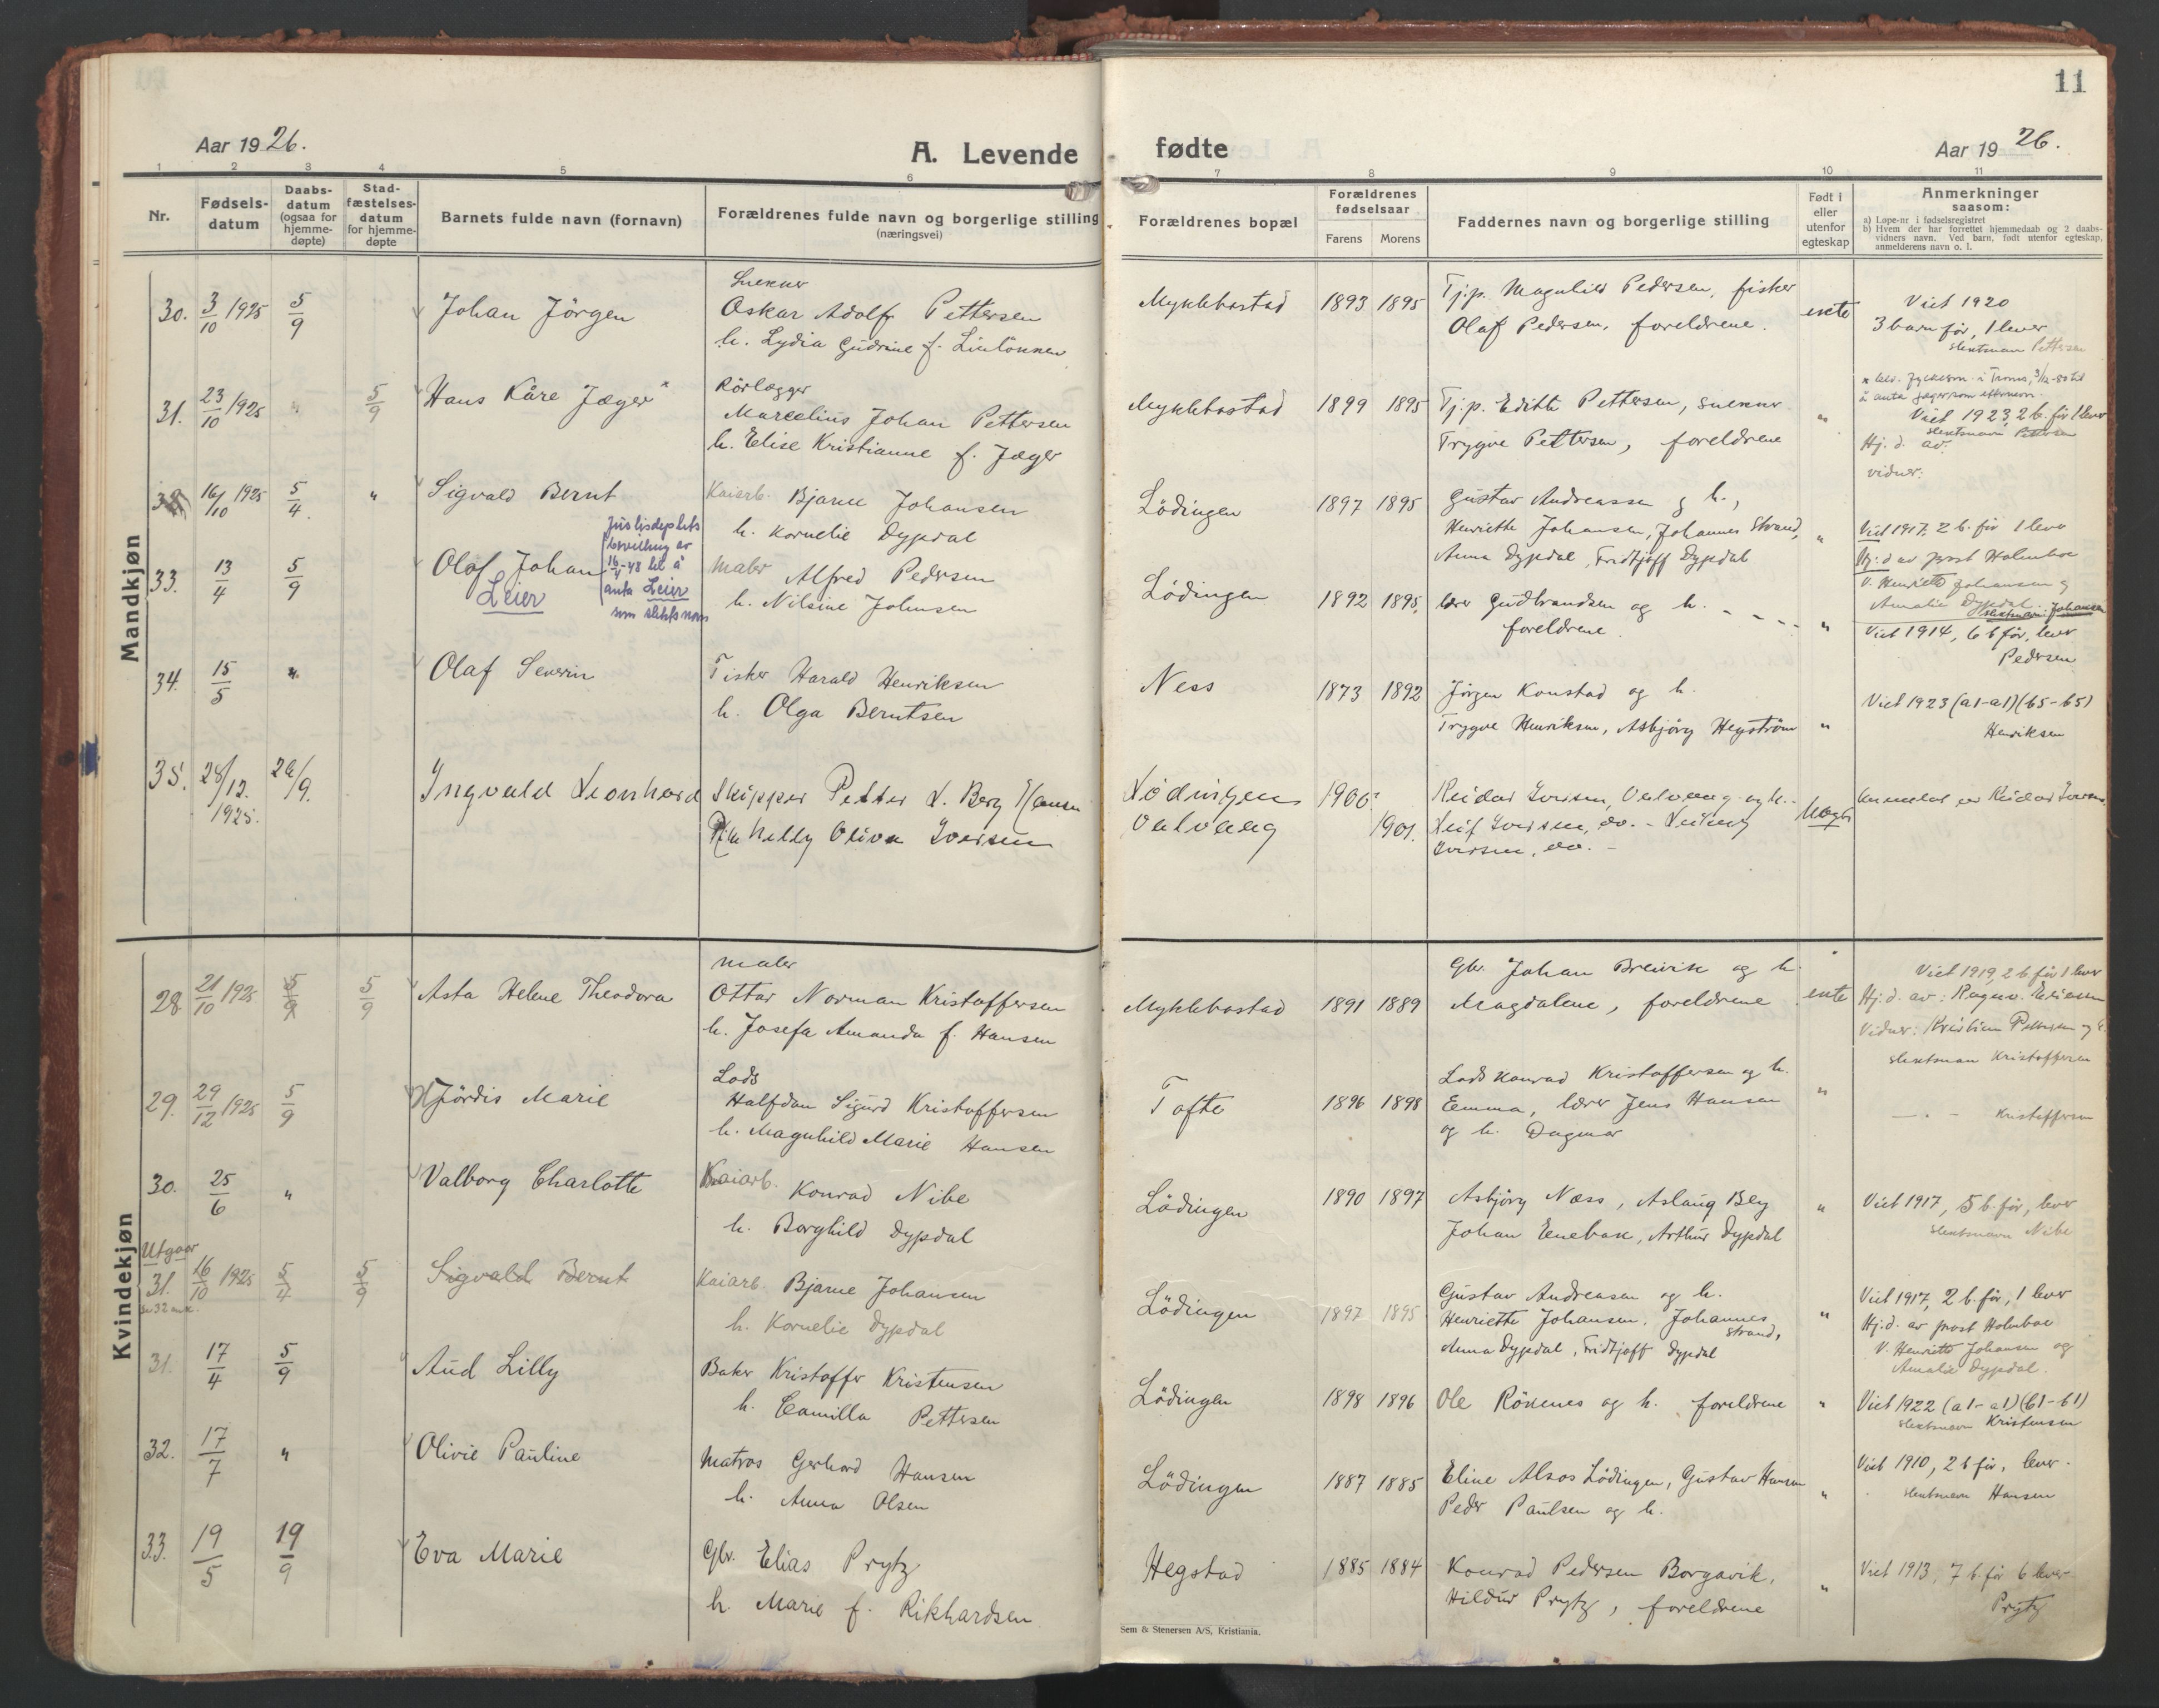 11
Aar 1926.
A. Levende fødte
Aar 1926.
1 2 3 4 5 6 7 8 9 10 11
Nr.
Fødsels-
datum
Daabs-
datum
(ogsaa for
hjemme-
døpte)
Stad-
fæstelses-
datum
for hjemme-
døpte
Barnets fulde navn (fornavn)
Forældrenes fulde navn og borgerlige stilling
(næringsvei)
Forældrenes bopæl
Forældrenes
fødselsaar
Farens Morens
Faddernes navn og borgerlige stilling
Født i
eller
utenfor
egteskap
Anmerkninger
saasom:
a) Løpe-nr i fødselsregistret
b) Hvem der har forrettet hjemmedaab og 2 daabs-
vidners navn. Ved barn, født utenfor egteskap,
anmelderens navn o. l.
Mandkjøn
30. 3/10 1925 5/9 Johan Jörgen
Snekker
Oskar Adolf Pettersen
h. Lydia Gudrine f.
Myklebostad 1893 1895
Tj.p. Magnhild Pedersen, fisker
Olaf Pedersen, foreldrene.
ekte
Viet 1920
3 barn før, 1 lever
slektsnavn Pettersen
31. 23/10 1925 " 5/9 Hans Kåre Jæger *
Rörlægger
Marcelius Johan Pettersen
h. Elise Kristianne f. Jæger
Myklebostad 1899 1895
Tj.p. Edith Pettersen, snekker
Trygve Pettersen, foreldrene
"
å anta Jægersson etternavn
Viet 1923, 2 b. før 1 lever
slektsnavn Pettersen
Hj.d. av:
vidner:
32 16/10 1925 5/4. " Sigvald Bernt
Kaiarb. Bjarne Johansen
h. Kornelie Dypdal
Lödingen 1897 1895
Gustav Andreassen og h.,
Henriette Johansen, Johannes Strand,
Anna Dypdal, Fridtjoff Dypdal
"
Viet 1917, 2 b. før 1 lever
Hj.d av prost Holmboe
V. Henriette Johansen og
Amalie Dypdal.
slektsnavn: Johansen
33. 13/4 5/9 Olaf Johan
Leier
Justisdeptets
bevilling av
16/4-48 til å
anta Leier
som slektsnavn
Maler Alfred Pedersen
h. Nilsine Johnsen
Lödingen 1892 1895.
lærer Gudbrandsen og h. - - - -
foreldrene.
"
Viet 1914, 6 b før, lever
Pedersen
34. 15/5 " Olaf Severin
Fisker Harald Henriksen
h. Olga Berntsen
Ness 1873 1892
Jörgen Konstad og h.
Trygve Henriksen, Asbjörg Hegström
"
Viet 1923 (a1-a1)(b5-b5)
Henriksen
35. 28/12. 1925. 26/9. Ingvald Leonhard
Skipper Petter L. Berg Hansen
Pike Nelly Oliva Iversen
Lödingen
Valvaag
1900? 1901.
Reidar Iversen, Valvaag og h.
Leif Iversen, do. -
Iversen, do. -
Uegte
Anmeldt av Reidar Iversen
Kvindekjøn
28. 21/10 1925 5/9 5/9 Asta Helene Theodora
Maler
Ottar Norman Kristoffersen
h. Josefa Amanda f. Hansen
Myklebostad 1891 1889
Gbr. Johan Breivik og h.
Magdalene, foreldrene
ekte
Viet 1919, 2 b før 1 lever
Hj.d. av: Ragnv. Eriksen
Vidner: Kristian Pettersen og h.
slektsnavn Kristoffersen
29. 29/12 1925 5/9 Hjördis Marie
Lods
Halfdan Sigurd Kristoffersen
h. Magnhild Marie Hansen
Tofte 1896 1898
Lods Konrad Kristoffersen og h.
Emma, lærer Jens Hansen
og h. Dagmar
"
— " — Kristoffersen
30. 25/6 " Valborg Charlotte
Kaiarb. Konrad Nibe
h. Borghild Dypdal
Lödingen 1890 1897
Asbjörg Næss, Aslaug Berg
Johan Enebak, Arthur Dypdal
"
Viet 1917, 5 b. før, lever
slektsnavn Nibe
Utgaar
31. 16/10 1925 5/4 5/9 Sigvald Bernt
Se 32 m.k.
Kaiarb. Bjarne Johansen
h. Kornelie Dypdal
Lödingen 1897 1895
Gustav Andreasen og h.
Henriette Johansen, Johannes
Strand,
Anna Dypdal, Fridtjoff Dypdal
"
Viet 1917, 2 b. før, 1 lever
Hj.d. av prost Holmboe
V. Henriette Johansen og
Amalie Dypdal.
31. 17/4 5/9 Aud Lilly
Baker Kristoffer Kristensen
h. Camilla Pettersen
Lödingen 1898 1896
Ole Rönenes og h. foreldrene
"
Viet 1922 (a1-a1)(b1-b1)
slektsnavn Kristensen
32. 17/7 " Olivie Pauline
Matros Gerhard Hansen
h. Anna Olsen
Lödingen 1887 1885
Eline Alsos Lödingen, Gustav Hansen
Peder Paulsen og h.
"
Viet 1910, 2 b før, lever.
slektsnavn Hansen
33. 19/5 19/9 Eva Marie
Gbr. Elias Prytz
h. Marie f. Rikhardsen
Hegstad 1885 1884
Konrad Pedersen Borgavik,
Hildur Prytz, foreldrene
"
Viet 1913, 7 b. før 6 lever
Prytz
Sem & Stenersen A/S, Kristiania.